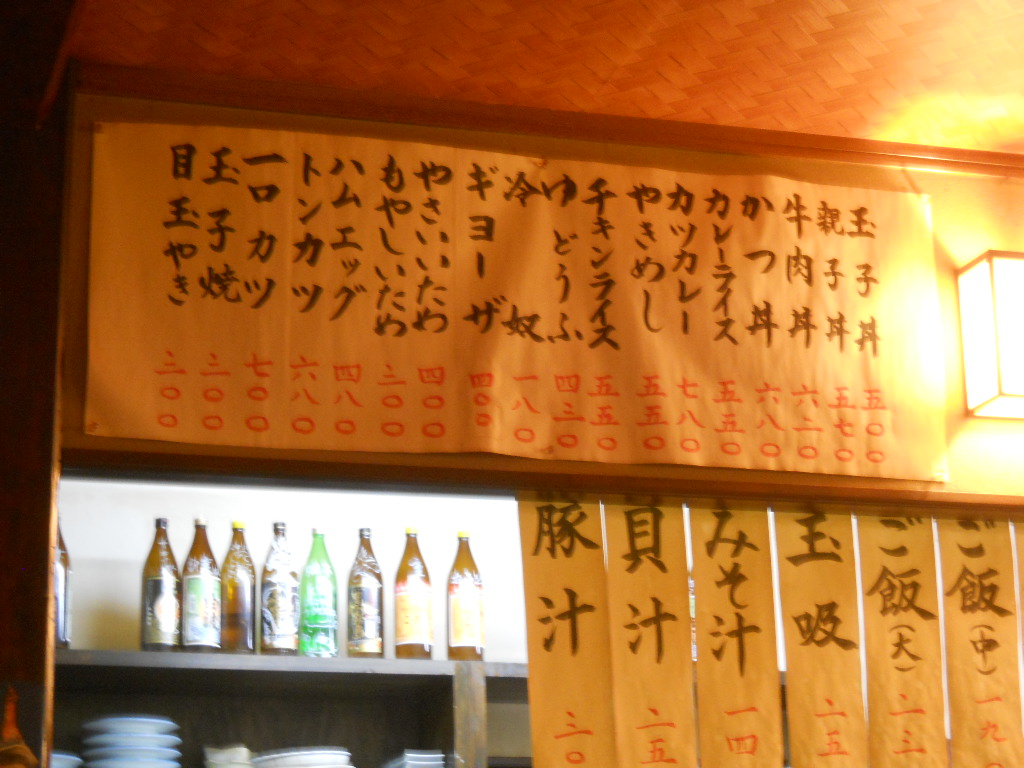 玉子丼 五〇〇
親子丼 五七〇
牛肉丼 六三〇
かつ丼 六八〇
カレーライス 五五〇
カツカレー 七八〇
やきめし 五五〇
チキンライス 五五〇
ゆどうふ 四三〇
冷奴 一八〇
ギョーザ 四〇〇
やさいいため 四〇〇
もやしいため 三〇〇
ハムエッグ 四八〇
トンカツ 六八〇
一口カツ 七〇〇
玉子焼 三〇〇
目玉やき 三〇〇
ご飯(中) 一九
ご飯(大)
玉吸
みそ汁 一四
貝汁
豚汁